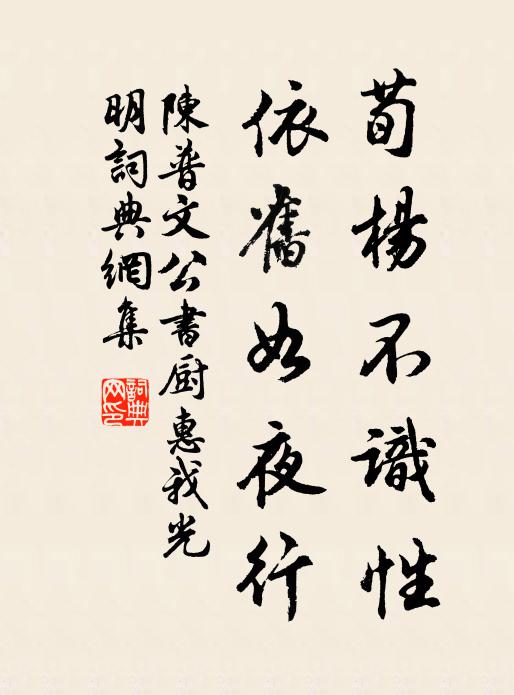 荀楊不識性
依舊如夜行
陳普文公書厨惠我光
明詞典網集
詞典
网印